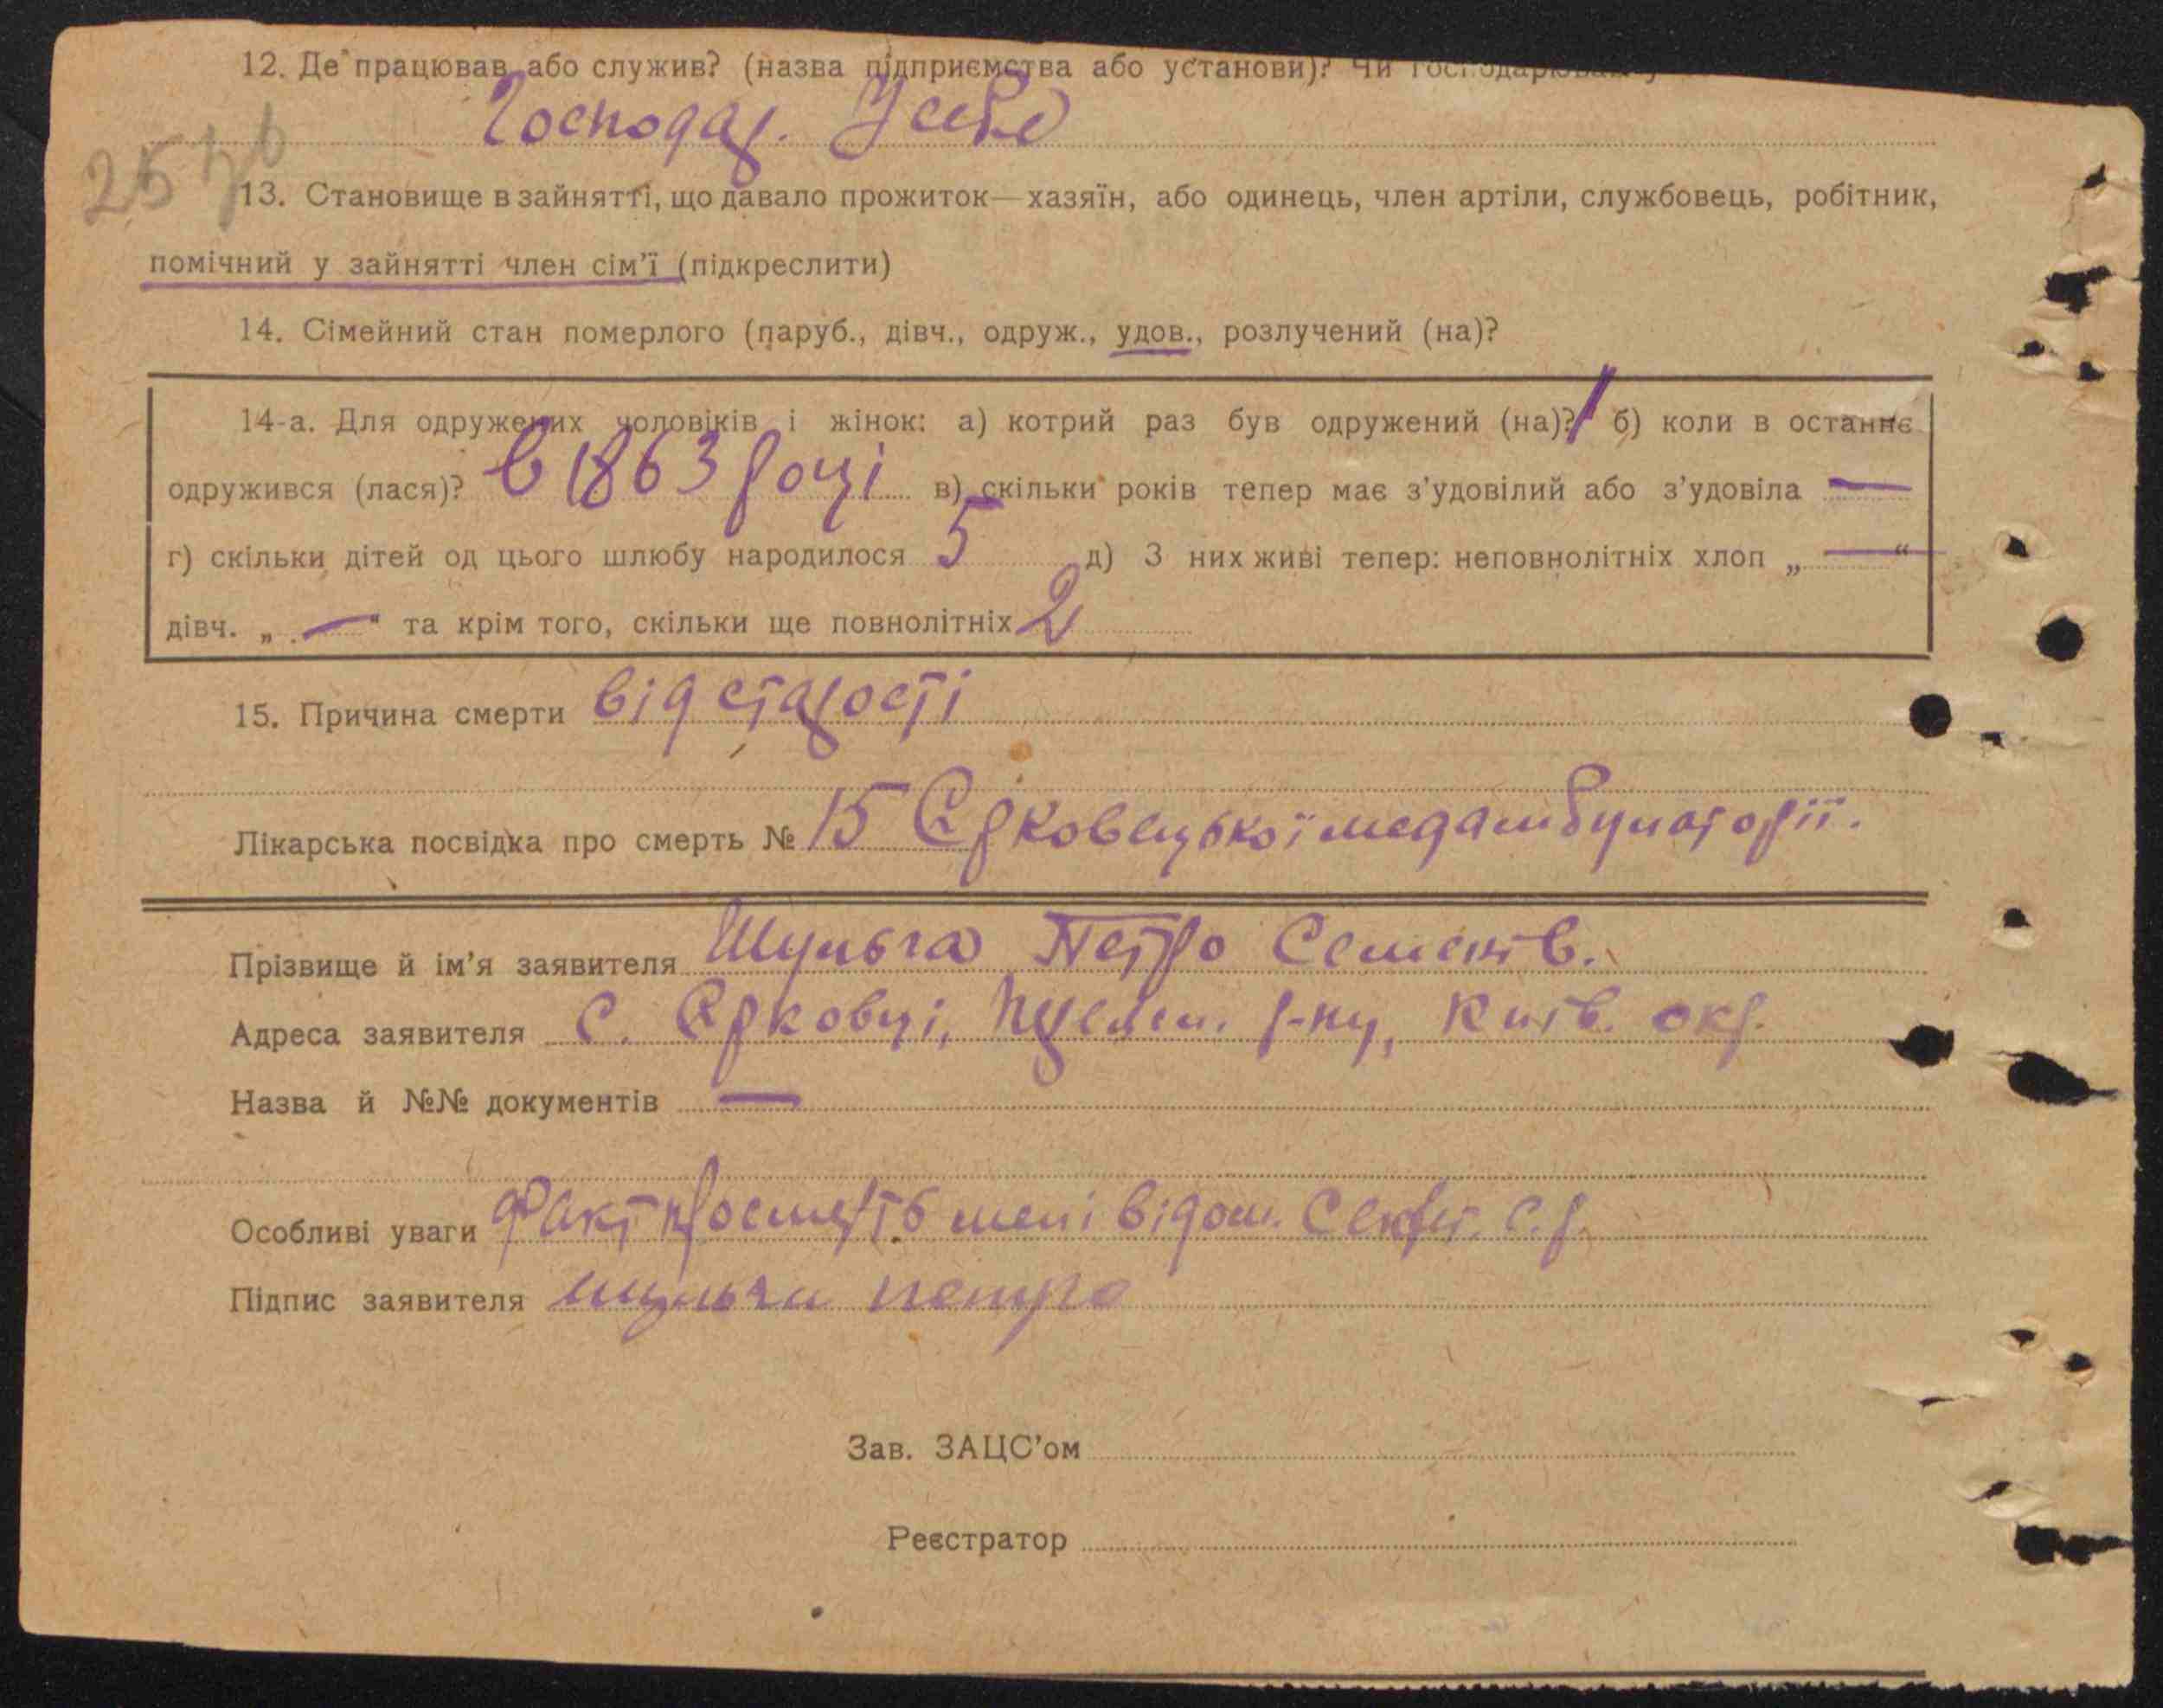 12. Де працював або служив? (назва підприємства або установи)? Чи господарював у
Господар. У себе
257б
13. Становище в зайнятті, що давало прожиток—хазяїн, або одинець, член артіли, службовець, робітник,
помічний у зайнятті член сім’ї (підкреслити)
14. Сімейний стан померлого (паруб., дівч., одруж., удов., розлучений (на)?
14-а. Для одружених чоловіків і жінок: а) котрий раз був одружений (на)? 1 б) коли в останнє
одружився (лася)? в 1863 році в) скільки років тепер має з’удовілий або з’удовіла —
г) скільки дітей од цього шлюбу народилося 5 д) З них живі тепер: неповнолітніх хлоп „ — “
дівч. „ — “ та крім того, скільки ще повнолітніх 2
15. Причина смерти від старості
Лікарська посвідка про смерть № 15 Єрковецької медамбулаторії.
Прізвище й ім’я заявителя Шульга Петро Семенів.
Адреса заявителя с. Єрковці, р-ну, Київ. окр.
Назва й №№ документів —
Особливі уваги Факт про смерть мені відом. Секрет. с.р.
Підпис заявителя шульга петро
Зав. ЗАЦС’ом
Реєстратор